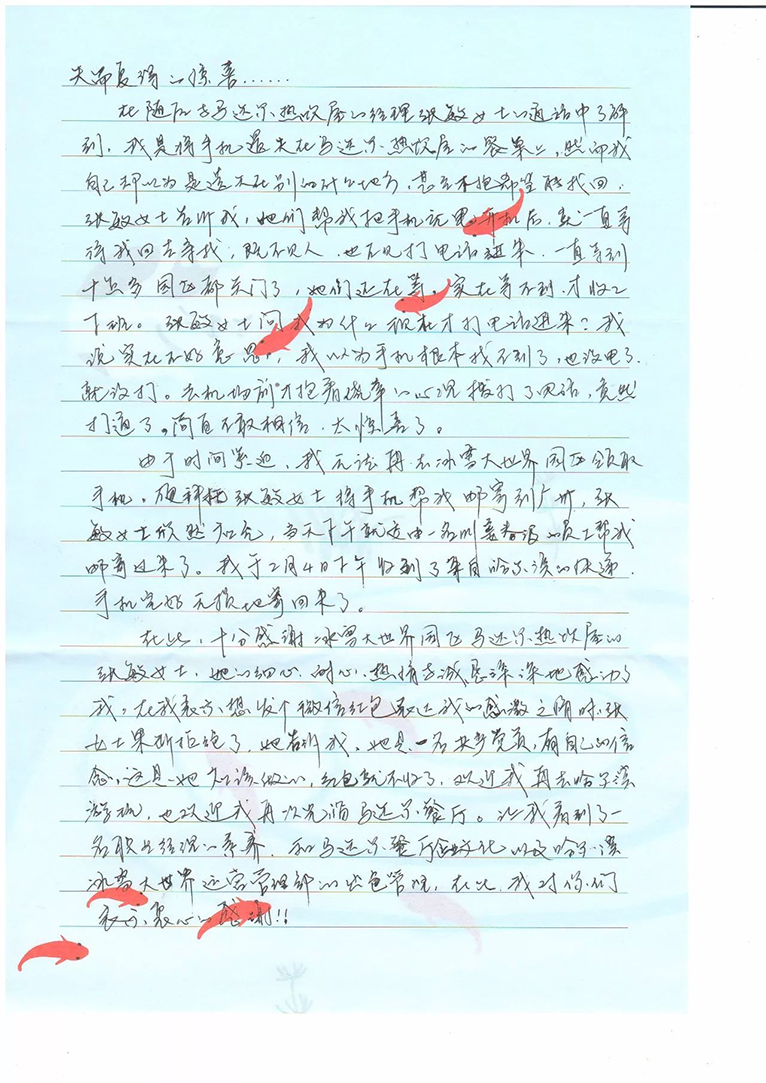 失而复得的惊喜……
在随后与马迭尔热饮屋的经理张敏女士的通话中了解
到，我是将手机遗失在马迭尔热饮屋的餐桌上，然而我
自己却以为是遗失在别的什么地方，甚至不抱希望能找回。
张敏女士告诉我，她们帮我把手机充电开机后，就一直等
待我回去寻找，既不见人，也不见打电话进来，一直等到
十点多园区都关门了，她们还在等，实在等不到，才收工
下班。张敏女士问我为什么现在才打电话进来？我
说实在不好意思，我以为手机根本找不到了，也没电了，
就没打。去机场前才抱着侥幸的心理拨打了电话，竟然
打通了。简直不敢相信，太惊喜了。
由于时间紧迫，我无法再去冰雪大世界园区领取
手机，便拜托张敏女士将手机帮我邮寄到广州，张
敏女士欣然允，当天下午就由一名叫的员工帮我
邮寄过来了。我于2月4日下午收到了来自哈尔滨的快递，
手机完好无损地寄回来了。
在此，十分感谢冰雪大世界园区马迭尔热饮屋的
张敏女士，她的细心、耐心、热情与诚恳深深地感动了
我，在我表示想发个微信红包表达我的感激之情时，张
女士果断拒绝了，她告诉我，她是一名共产党员，有自己的信
念，这是她应该做的，红包就不收了，欢迎我再去哈尔滨
游玩，也欢迎我再次光临马迭尔餐厅。让我看到了一
名职业经理的素养，和马迭尔餐厅企业文化以及哈尔滨
冰雪大世界运营管理部的出色管理，在此，我对你们
表示衷心的感谢!!